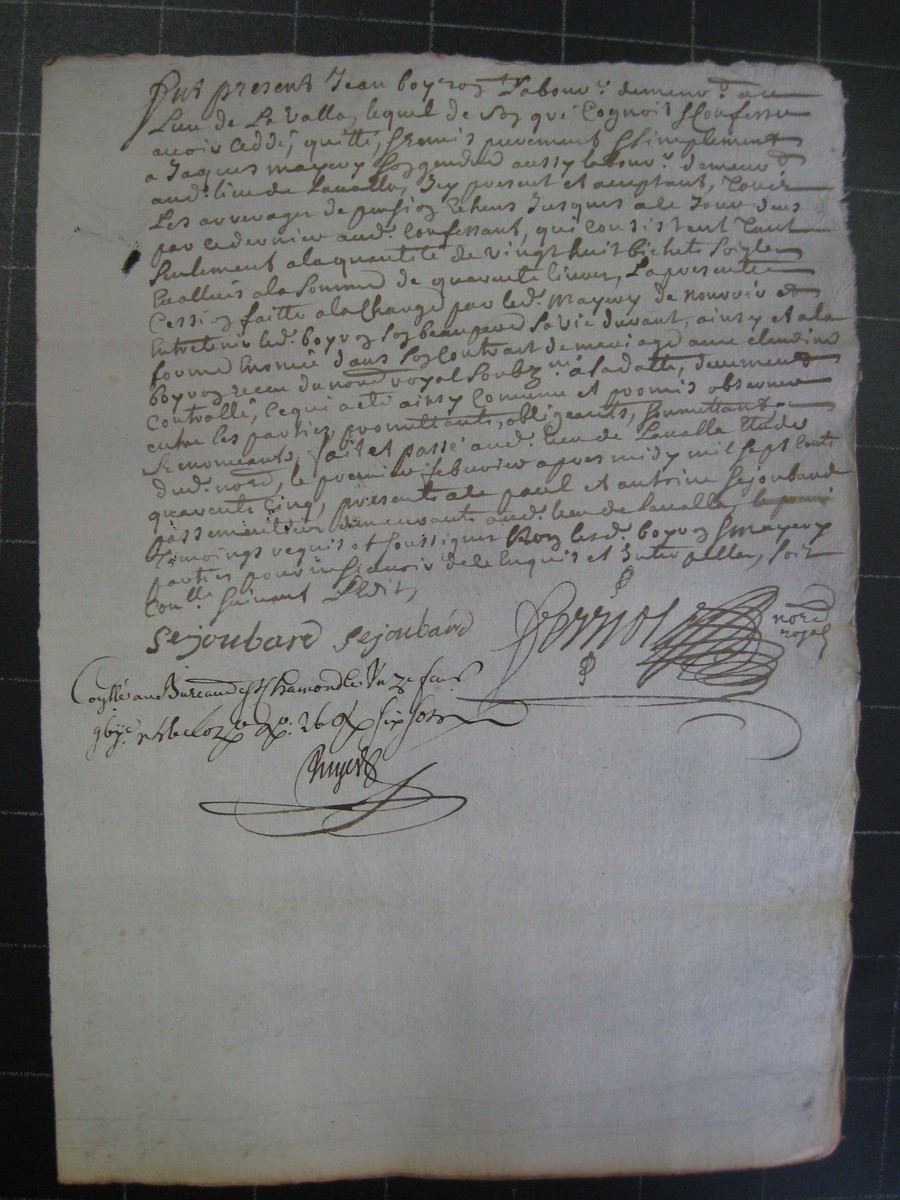 fut present Jean boyron Labour.r demeur.t au
Lieu de La Valla, lequel de Gré qui Cognoit & Confesse
avoir Ceddé, quitté, & remis purement & simplement
a Jaques mayery son gendre aussy labour.r demeur.t
aud. lieu de Lavalla, Icy present et aceptant, Scavoir
Les arrerages de pension Echeus Jusques a ce Jour deus
par ce dernier aud. Confessant, qui consistent tant
Seulement a la quantité de vingt huit bichets Seigle
Evallués a la Somme de quarante livres, La presente
Cession faitte a la Charge par led. mayery de nourrir et
Entretenir led. boyron son beaupere sa vie durant, ainsy et a la
forme Enoncée dans son Contract de mariage avec claudine
boyron receu du nore royal Soubz.né a sa datte, deuement
Controllé, Ce qui a eté ainsy Convenu et promis observer
entre les parties, promettants, obligeants, Soumettants
Renonceants, fait et passé aud. lieu de Lavalla Etude
dud. nore, le premier febvrier apres midy mil sept cents
quarente Cinq, presents a ce paul et antoine Sejoubard
passementiers demeurants aud. lieu de Lavalla
Temoings requis et soussignes Non lesd. boyron & mayery
parties pour ne scavoir de ce Enquis et Interpellés, soit
Con.llé Suivant L'Edit,
Sejoubard Sejoubard
nore
royal
Con.llé au Bureau de St Chamond le
six sols